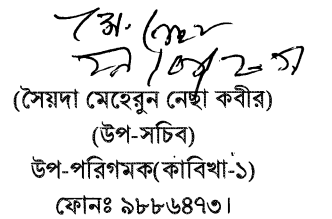 (সৈয়দা মেহেরুন নেছা কবীর)
(উপ-সচিব)
উপ-পরিগমক(কাবিখা-১)
ফোনঃ ৯৮৮৬৪৭৩।